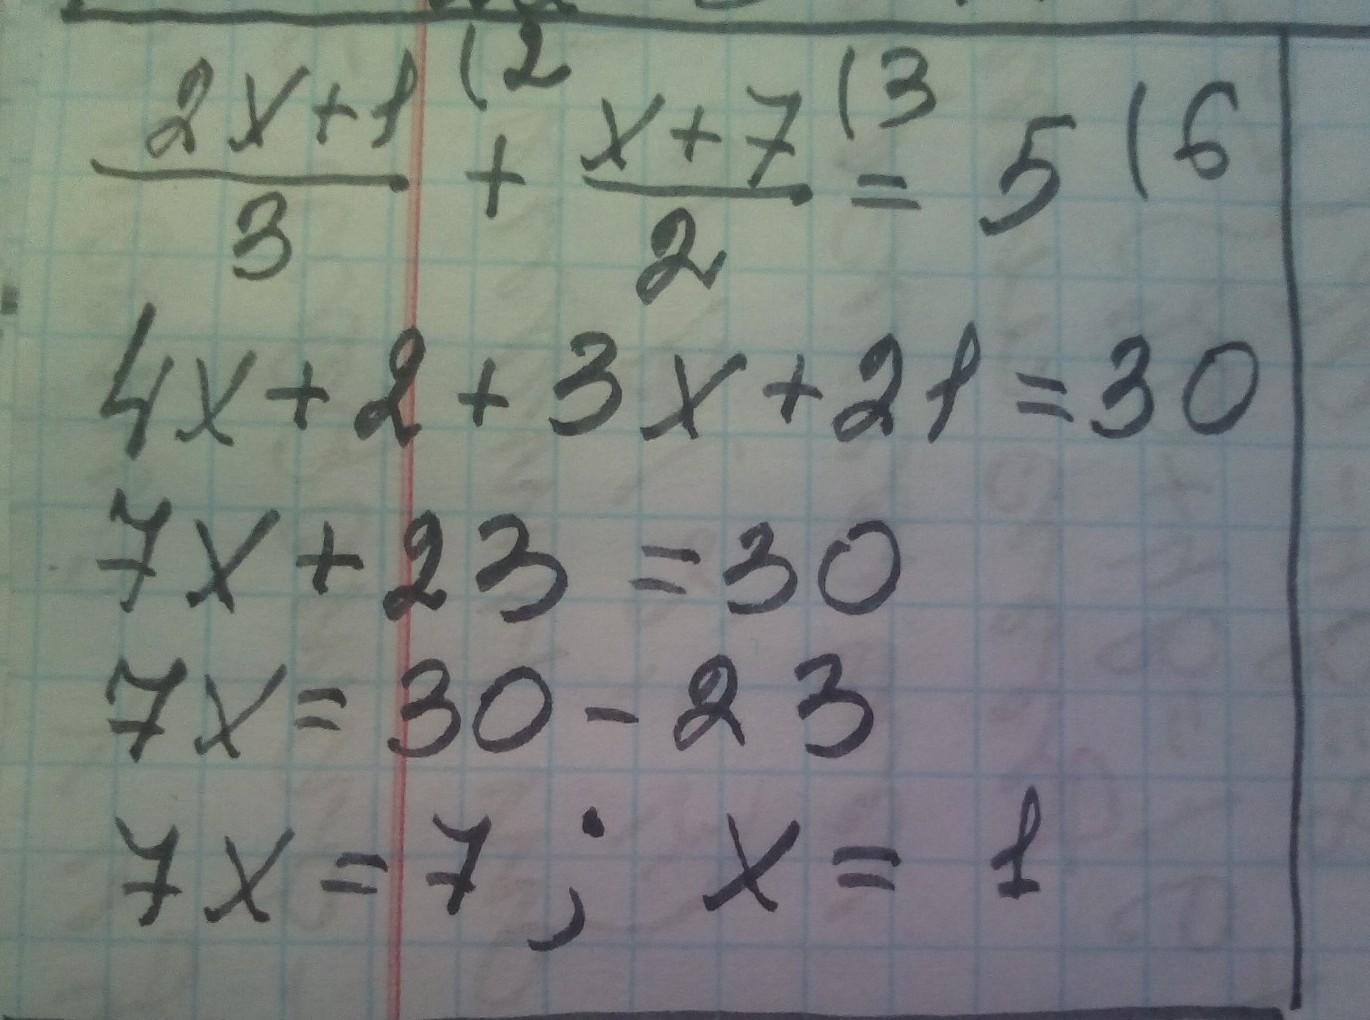 2x+1 (2 + x+7 (3 = 5 (6
3 2
4x+2+3x+21=30
7x+23=30
7x=30-23
7x=7; x=1